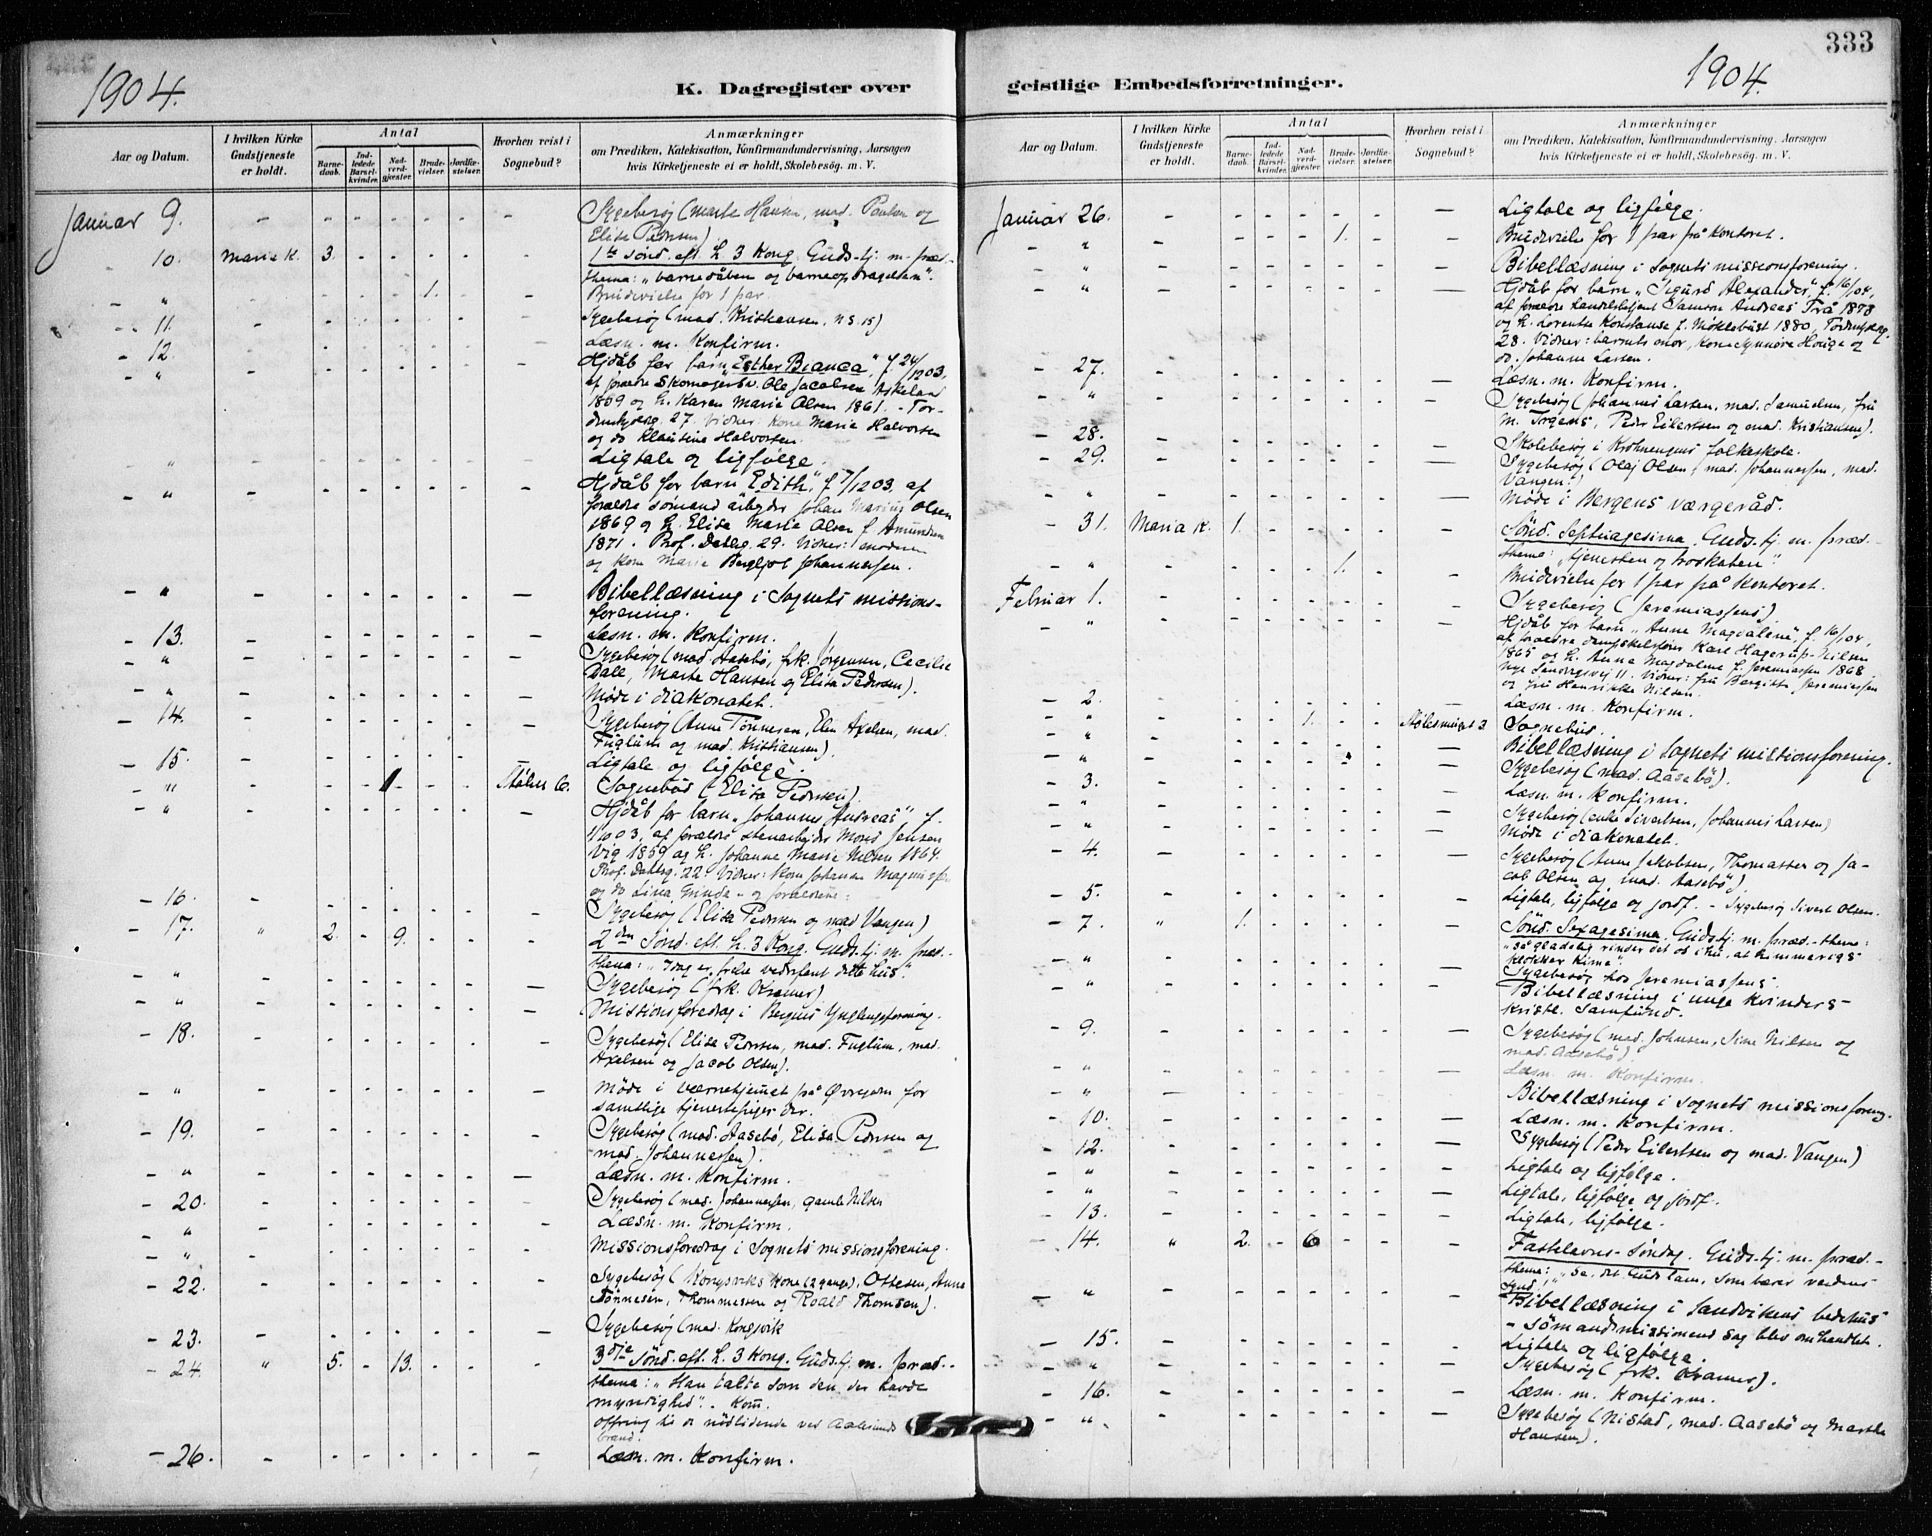 333
1904.
K. Dagregister over
Aar og Datum.
I hvilken Kirke Gudstjeneste er holdt.
Antal
Barnedaab.
Indledede Barselkvinder.
Nadverdgjester.
Brudevielser.
Jordfæstelser.
Hvorhen reist i Sognebud?
Anmærkninger
om Prædiken, Katekisation, Konfirmandundervisning, Aarsagen
hvis Kirketjeneste ei er holdt, Skolebesøg m. V.
Januar 9. - - - - - - - Sygebesøg (Marte Hansen, mad. Paulsen og
Elisa Pedersen).
10. Maria K. 3. - - - - 1ste sønd. eft. h. 3 Kong. Guds.tj. m. præd.-
thema: "barnedåben og barneopdragelsen".
- " - - - - 1. - - Brudevielse for 1 par.
- 11. - - - - - - Sygebesøg (mad. Kristensen, N.S. 15)
- 12. - - - - - - Læsn. m. Konfirm.
- " - - - - - - - Hjdåb for barn "Esther Bianca", f. 24/12 03,
af forældre Skomagersv. Ole Jacobsen Askeland
1869 og h. Karen Marie Olsen 1861. - Tor-
denskjoldsg. 27. Vidner: kone Marie Halvorsen
og do Klausine Halvorsen.
- " - - - - - - - Ligtale og ligfølge.
- " - - - - - - - Hjdåb for barn "Edith", f. 7/12 03, af
forældre sømand arbeider Johan Marius Olsen
1869 og h. Elisa Marie Olsen f. Amundsen
1871. Prof. Dahlsg. 29. Vidner: moderen
og kone Marie Bergljot Johannessen.
- " - - - - - - - Bibellæsning i Sognets missions-
forening.
- 13. - - - - - - - Læsn. m. Konfirm.
- " - - - - - - - Sygebesøg (mad. Aasebø, frk. Jørgensen, Cecilie
Dale, Marte Hansen og Elisa Pedersen).
- " - - - - - - - Møde i diakonatet.
- 14. - - - - - - - Sygebesøg (Anne Tønnesen, Elen Axelsen, mad.
Fuglum og mad. Kristiansen).
- 15. - - - - - - - Ligtale og ligfølge.
- " - - - 1 - - Stølen 6. Sognebud (Elisa Pedersen).
- " - - - - - - - Hjdåb for barn "Johannes Andreas" f.
03, af forældre stenarbeider Mons Jensen
Vig 1859 og h. Johanne Marie Nilsen 1864.
Prof. Dahlsg. 22. Vidner: kone Johanne
og do Lina Grinde - og forældrene.
- 16. - - - - - - - Sygebesøg (Elisa Pedersen og mad. Vangen)
- 17. " 2. - 9. - - - 2den Sønd. eft. h. 3 Kong. Guds.tj. m. præd.-
thema: "Idag er frelse vederfaret dette hus."
- " - - - - - - - Sygebesøg (frk. Kramer)
- " - - - - - - - Missionsforedrag i Bergens Ynglingeforening.
- 18. - - - - - - - Sygebesøg (Elisa Pedersen, mad. Fuglum, mad.
Axelsen og Jacob Olsen).
- " - - - - - - - Møde i værnehjemmet på Øvregaden for
samtlige tjenestepiger der.
- 19. - - - - - - - Sygebesøg (mad. Aasebø, Elisa Pedersen og
mad. Johannessen).
- " - - - - - - - Læsn. m. Konfirm.
- 20. - - - - - - - Sygebesøg (mad. Johannessen, gamle Nilsen
- " - - - - - - - Læsn. m. Konfirm.
- " - - - - - - - Missionsforedrag i Sognets missionsforening.
- 22. - - - - - - - Sygebesøg (Kongsviks kone (2 gange), Ottesen, Anna
Tønnesen, Thommesen og Roald Thomsen).
- 23. - - - - - - - Sygebesøg (mad. Kongsvik
- 24. " 5. - 13. - - - 3dje Sønd. eft. h. 3 Kong. Guds.tj. m. præd.-
thema: "Han talte som den, der havde
myndighed". - Kom.
Ofring til de nødlidende ved Aalesunds
brand.
- 26. - - - - - - - Læsn. m. Konfirm.
1904.
geistlige Embedsforretninger.
Aar og Datum.
I hvilken Kirke Gudstjeneste er holdt.
Antal
Barnedaab.
Indledede Barselkvinder.
Nadverdgjester.
Brudevielser.
Jordfæstelser.
Hvorhen reist i Sognebud?
Anmærkninger
om Prædiken, Katekisation, Konfirmandundervisning, Aarsagen
hvis Kirketjeneste ei er holdt, Skolebesøg m. V.
Januar 26. - - - - - - - Ligtale og ligfølge.
- " - - - - 1. - - Brudevielse for 1 par på kontoret.
- " - - - - - - - Bibellæsning i Sognets missionsforening.
- " - - - - - - - Hjdåb for barn "Sigurd Alexander" f. 16/1 04,
af forældre handelsbetjent Samson Andreas Frå 1878
og h. Lorentse Konstanse f. Møklebust 1880, Tordenskjoldsg.
28. Vidner: barnets mor, kone Synnøve Hauge og
do. Johanne Larsen.
- 27. - - - - - - - Læsn. m. Konfirm.
- " - - - - - - - Sygebesøg (Johannes Larsen, mad. Samuelsen, fru
M. Irgens, Peder Eilertsen og mad. Kristiansen).
- 28. - - - - - - - Skolebesøg i Krohnengens folkeskole.
- 29. - - - - - - - Sygebesøg (Olaj Olsen, mad. Johannessen, mad.
Vangen)
- " - - - - - - - Møde i Bergens værgeråd.
- 31. Maria K. 1. - - - - - Sønd. Septuagesima. Guds.tj. m. præd.-
thema: "tjenesten og troskaben".
- " - - - - 1. - - Brudevielse for 1 par på kontoret.
Februar 1. - - - - - - - Sygebesøg (Jeremiassens)
- " - - - - - - - Hjdåb for barn "Anne Magdalene", f. 16/1 04,
af forældre dampskibsfører Karl Hagerup-Nilsen
1865 og h. Anne Magdalene f. Jeremiassen 1868
nye Sandviksvej 11. Vidner: fru Bergitte Jeremiassen
og fru Henrikke Nilsen.
- 2. - - - - - - - Læsn. m. Konfirm.
- " - - - 1. - - 3 Sognebud.
- " - - - - - - - Bibellæsning i Sognets missionsforening.
- " - - - - - - - Sygebesøg (mad. Aasebø).
- 3. - - - - - - - Læsn. m. Konfirm.
- " - - - - - - - Sygebesøg (enke Sivertsen, Johannes Larsen)
- " - - - - - - - Møde i diakonatet.
- 4. - - - - - - - Sygebesøg (Anne Jakobsen, Thomassen og Ja-
cob Olsen og mad. Aasebø).
- 5. - - - - - - - Ligtale, ligfølge og jordf. - Sygebesøg Sivert Olsen.
- 7. " 1. - - - - - Sønd. Sexagesima. Guds.tj. m. præd.-thema:
"så gladelig rinder det os i hu, at himmeriges
klokker kime".
- " - - - - - - - Sygebesøg hos Jeremiassens.
- " - - - - - - - Bibellæsning i unge kvinders
kristl. Samfund.
- 9. - - - - - - - Sygebesøg (mad. Johnsen, Sine Nilsen og
mad. Aasebø)
- " - - - - - - - Læsn. m. Konfirm.
- " - - - - - - - Bibellæsning i Sognets missionsforening.
- 10. - - - - - - - Læsn. m. Konfirm.
- 12. - - - - - - - Sygebesøg (Peder Eilertsen og mad. Vangen)
- " - - - - - - - Ligtale og ligfølge.
- " - - - - - - - Ligtale, ligfølge og jordf.
- 13. - - - - - - - Ligtale, ligfølge.
- 14. " 2. - 6 - - - Fastelavns-Søndag. Guds.tj. m. præd.-
thema: "Se, det Guds lam, som bærer verdens
synd".
- " - - - - - - - Bibellæsning i Sandvikens bedehus
- sømandsmissionens sag blev omhandlet.
- 15. - - - - - - - Ligtale og ligfølge.
- " - - - - - - - Sygebesøg (frk. Kramer).
- 16. - - - - - - - Læsn. m. Konfirm.
- " - - - - - - - Sygebesøg (Nistad, mad. Aasebø og Marthe
Hansen).